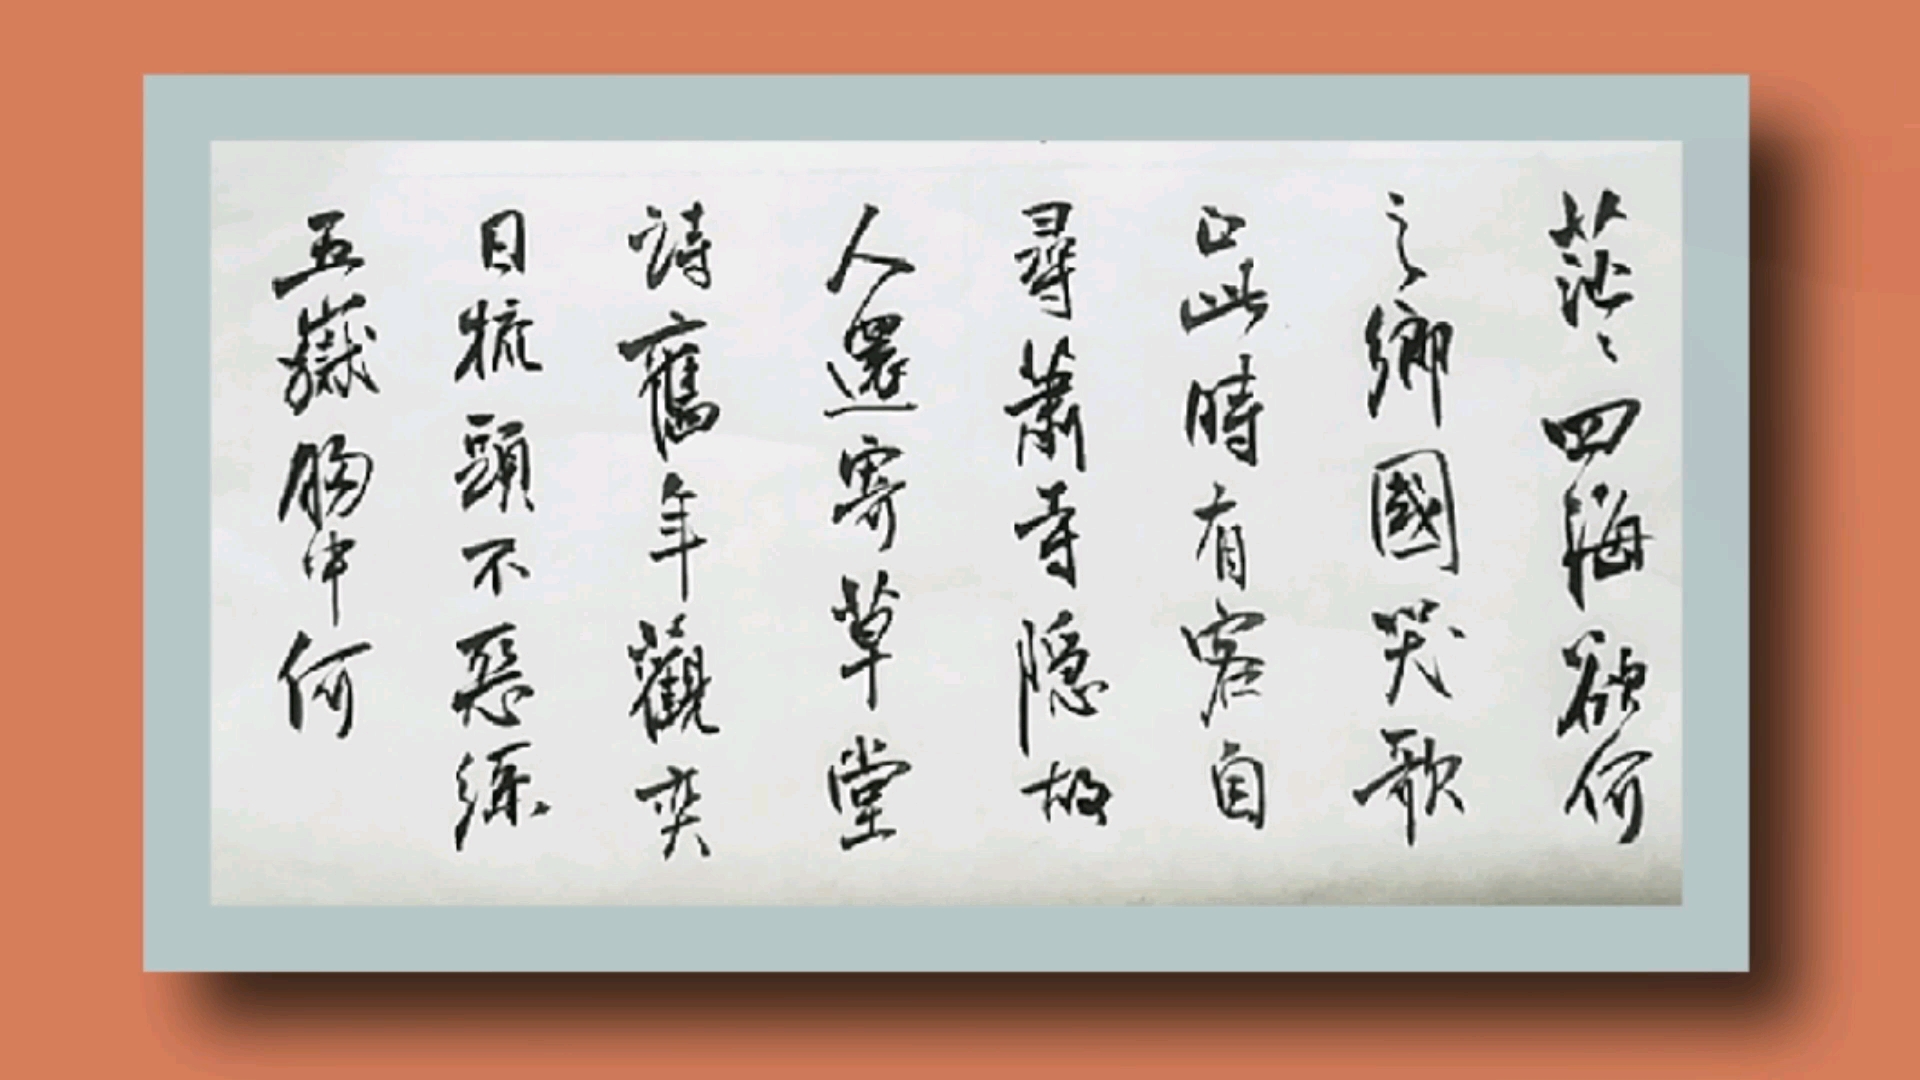 茫々四海欲何
之鄉國哭歌
正此時有客自
尋蕭寺隱故
人還寄草堂
詩舊年觀奕
目梳頭不惡練
五嶽胸中何